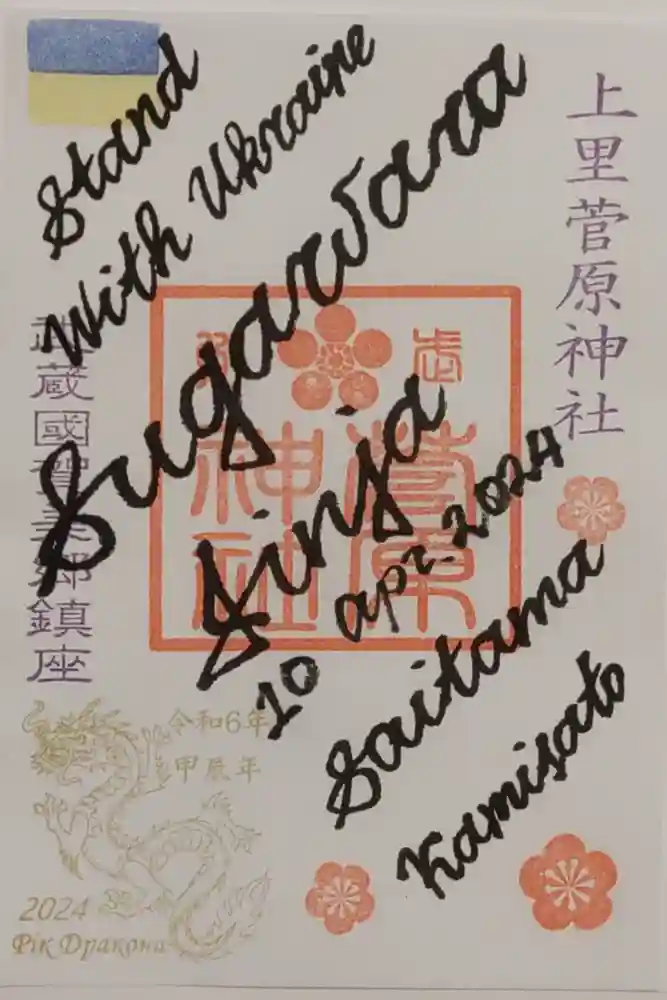 Stand
With Ukraine
Sugawara
Jinja
10 apr. 2024
Saitama
Kamisato
上里菅原神社
菅原
神社
武蔵國賀美郷鎮座
令和6年
甲辰年
2024
Рік Дракона